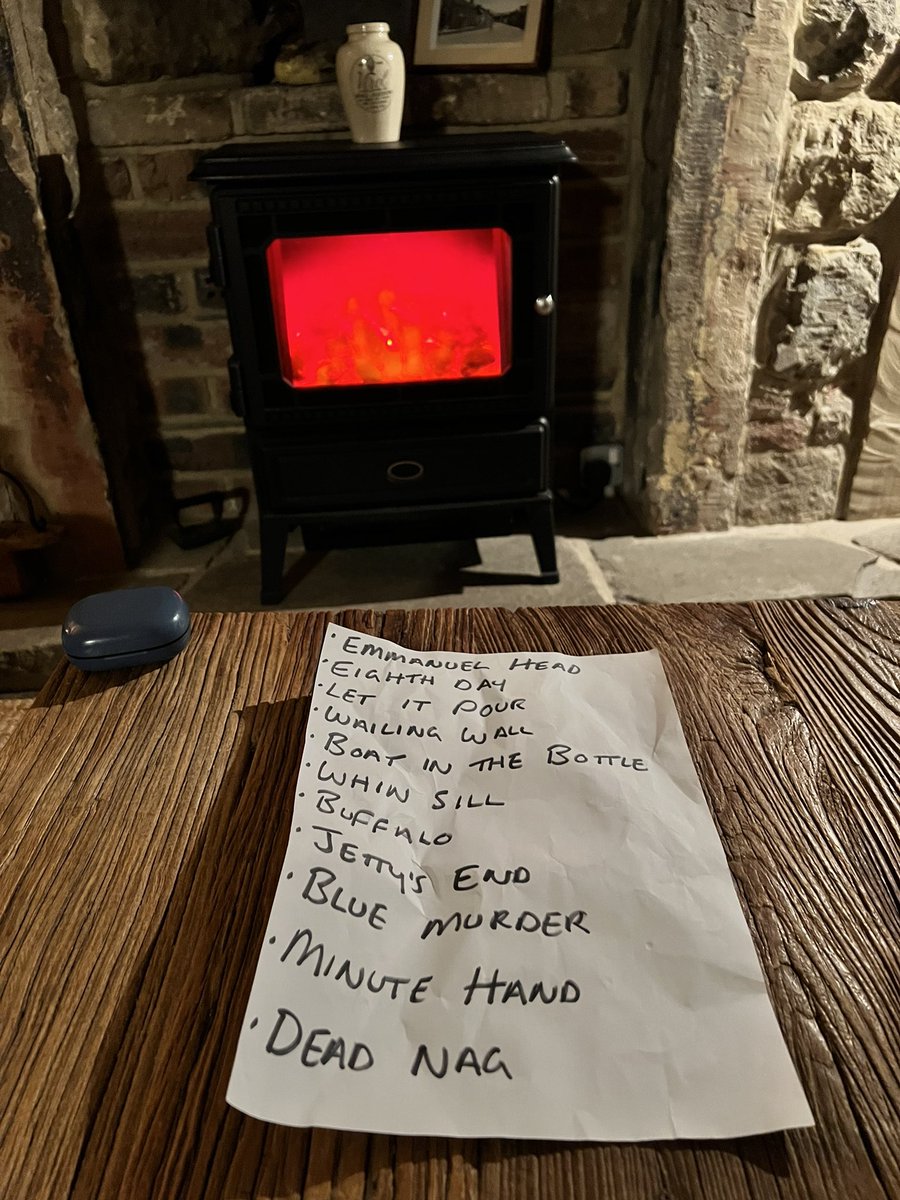 · EMMANUEL HEAD
· EIGHTH DAY
· LET IT POUR
· WAILING WALL
· BOAT IN THE BOTTLE
· WHIN SILL
· BUFFALO
· JETTY'S END
· BLUE MURDER
· MINUTE HAND
· DEAD NAG